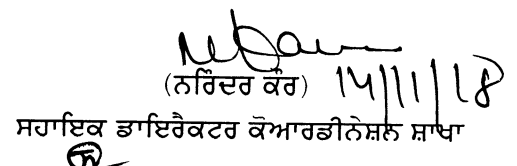 (ਨਰਿੰਦਰ ਕੌਰ) 14/11/18
ਸਹਾਇਕ ਡਾਇਰੈਕਟਰ ਕੋਆਰਡੀਨੇਸ਼ਲ ਸ਼ਾਖਾ